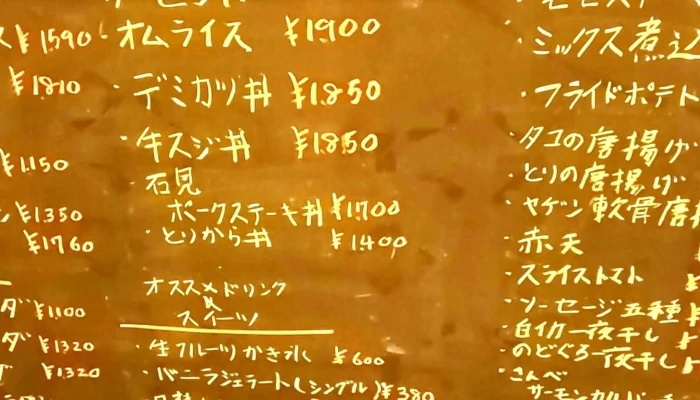 ¥1590
¥1810
¥1150
¥1350
¥1760
¥1100
¥1320
¥1320
・オムライス ¥1900
・デミカツ丼 ¥1850
・牛スジ丼 ¥1850
・石見
ポークステーキ丼 ¥1700
・とりから丼 ¥1400
オススメドリンク
&
スイーツ
・生フルーツかき氷 ¥600
・バニラジェラート(シングル)¥380
・ミックス煮込
・フライドポテト
・タコの唐揚げ
・とりの唐揚げ
・ヤゲン軟骨唐揚
・赤天
・スライストマト
・ソーセージ五種
・白イカ一夜干し
・のどぐろ一夜干し
・さんべ
サーモンカルパッチョ